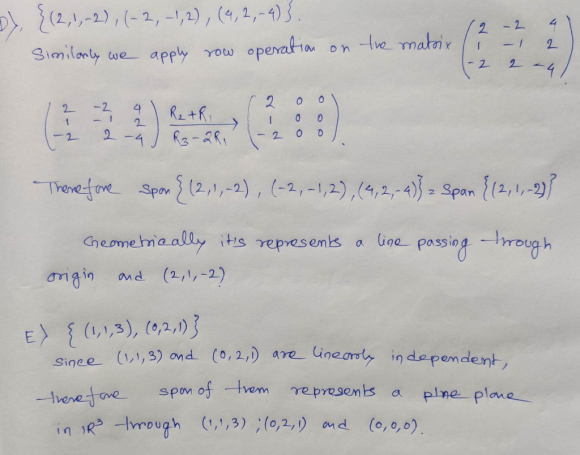 D>. {(2,1,-2), (-2,-1,2), (4,2,-4)}.
Similarly we apply row operation on the matrix ( 2 -2 4
1 -1 2
-2 2 -4 )
( 2 -2 4
1 -1 2
-2 2 -4 ) R₂+R₁ / R₃-2R₁ → ( 2 0 0
1 0 0
-2 0 0 ).
Therefore span {(2,1,-2), (-2,-1,2), (4,2,-4)} = span {(2,1,-2)}
Geometrically it is represents a line passing through
origin and (2,1,-2)
E> { (1,1,3), (0,2,1)}
since (1,1,3) and (0,2,1) are linearly independent,
therefore span of them represents a plne plane
in ℝ³ through (1,1,3) ; (0,2,1) and (0,0,0).